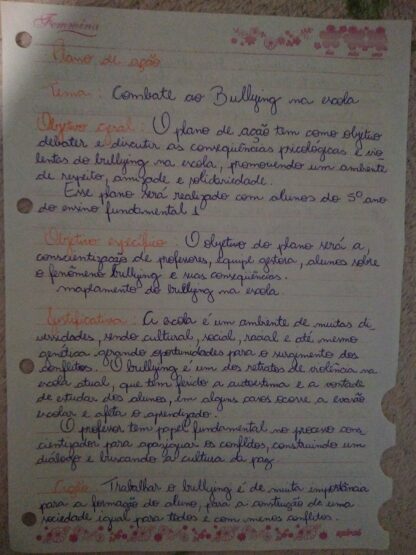 Feminina
Plano de ação
Tema: Combate ao Bullying na escola
Objetivo geral: O plano de ação tem como objetivo
debater e discutir as consequências psicológicas e vio
lentas do bullying na escola, promovendo um ambiente
de respeito, amizade e solidariedade.
Esse plano será realizado com alunos do 5º ano
do ensino fundamental 1
Objetivo específico: O objetivo do plano será a,
conscientização de professores, equipe gestora, alunos sobre
o fenômeno bullying e suas consequências.
mapeamento do bullying na escola.
Justificativa: A escola é um ambiente de muitas di
versidades, sendo cultural, social, racial e até mesmo
genética gerando oportunidades para o surgimento dos
conflitos. O bullying é um dos retratos de violência na
escola atual, que têm ferido a autoestima e a vontade
de estudar dos alunos, em alguns casos ocorre a evasão
escolar e afeta o aprendizado.
O professor tem papel fundamental no processo cons
cientizador para apaziguar os conflitos, construindo um
diálogo e buscando a cultura da paz.
Trabalhar o bullying é de muita importância
para a formação do aluno, para a construção de uma
sociedade igual para todos e com menos conflitos.